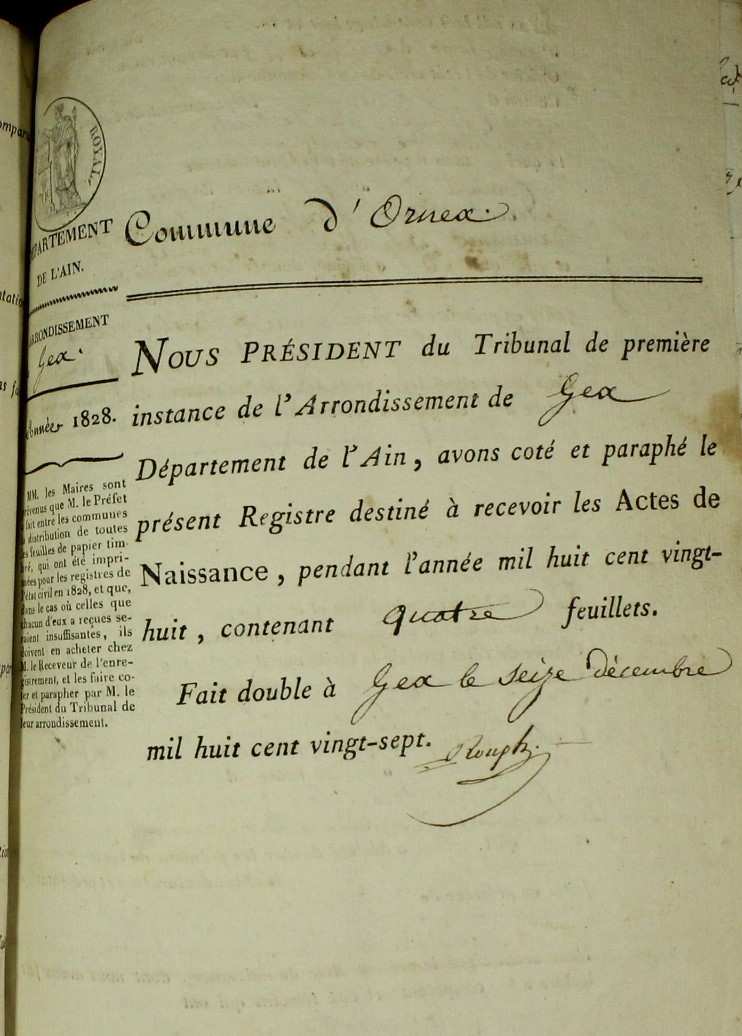 ROYAL
DÉPARTEMENT
DE L'AIN.
ARRONDISSEMENT
Gex.
Année 1828.
MM. les Maires sont
prévenus que M. le Préfet
fait entre les communes
la distribution de toutes
les feuilles de papier tim-
bré, qui ont été impri-
mées pour les registres de
l'état civil en 1828, et que,
dans le cas où celles que
chacun d'eux a reçues se-
raient insuffisantes, ils
doivent en acheter chez
M. le Receveur de l'enre-
gistrement, et les faire co-
ter et parapher par M. le
Président du Tribunal de
leur arrondissement.
Commune d'Ornex.
NOUS PRÉSIDENT du Tribunal de première
instance de l'Arrondissement de Gex
Département de l'Ain, avons coté et paraphé le
présent Registre destiné à recevoir les Actes de
Naissance, pendant l'année mil huit cent vingt-
huit, contenant quatre feuillets.
Fait double à Gex le seize décembre
mil huit cent vingt-sept.